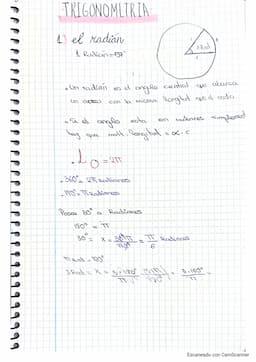 TRIGONOMETRIA
1) el radián
1 Radian = 57°
r
1 Rad
• Un radián es el angulo central que abarca
un arco con la misma longitud que el radio
• Si el angulo esta en radianes simplemente
hay que mult. longitud = α · r
L o = 2π
• 360° = 2π Radianes
• 180° = π Radianes
Pasar 30° a Radianes
180° = π
30° = x = 30°π / 180° = π / 6 Radianes
π Rad - 180°
3 Rad = x = 3 · 180° / π = 3 · 180° / π =
Escaneado con CamScanner